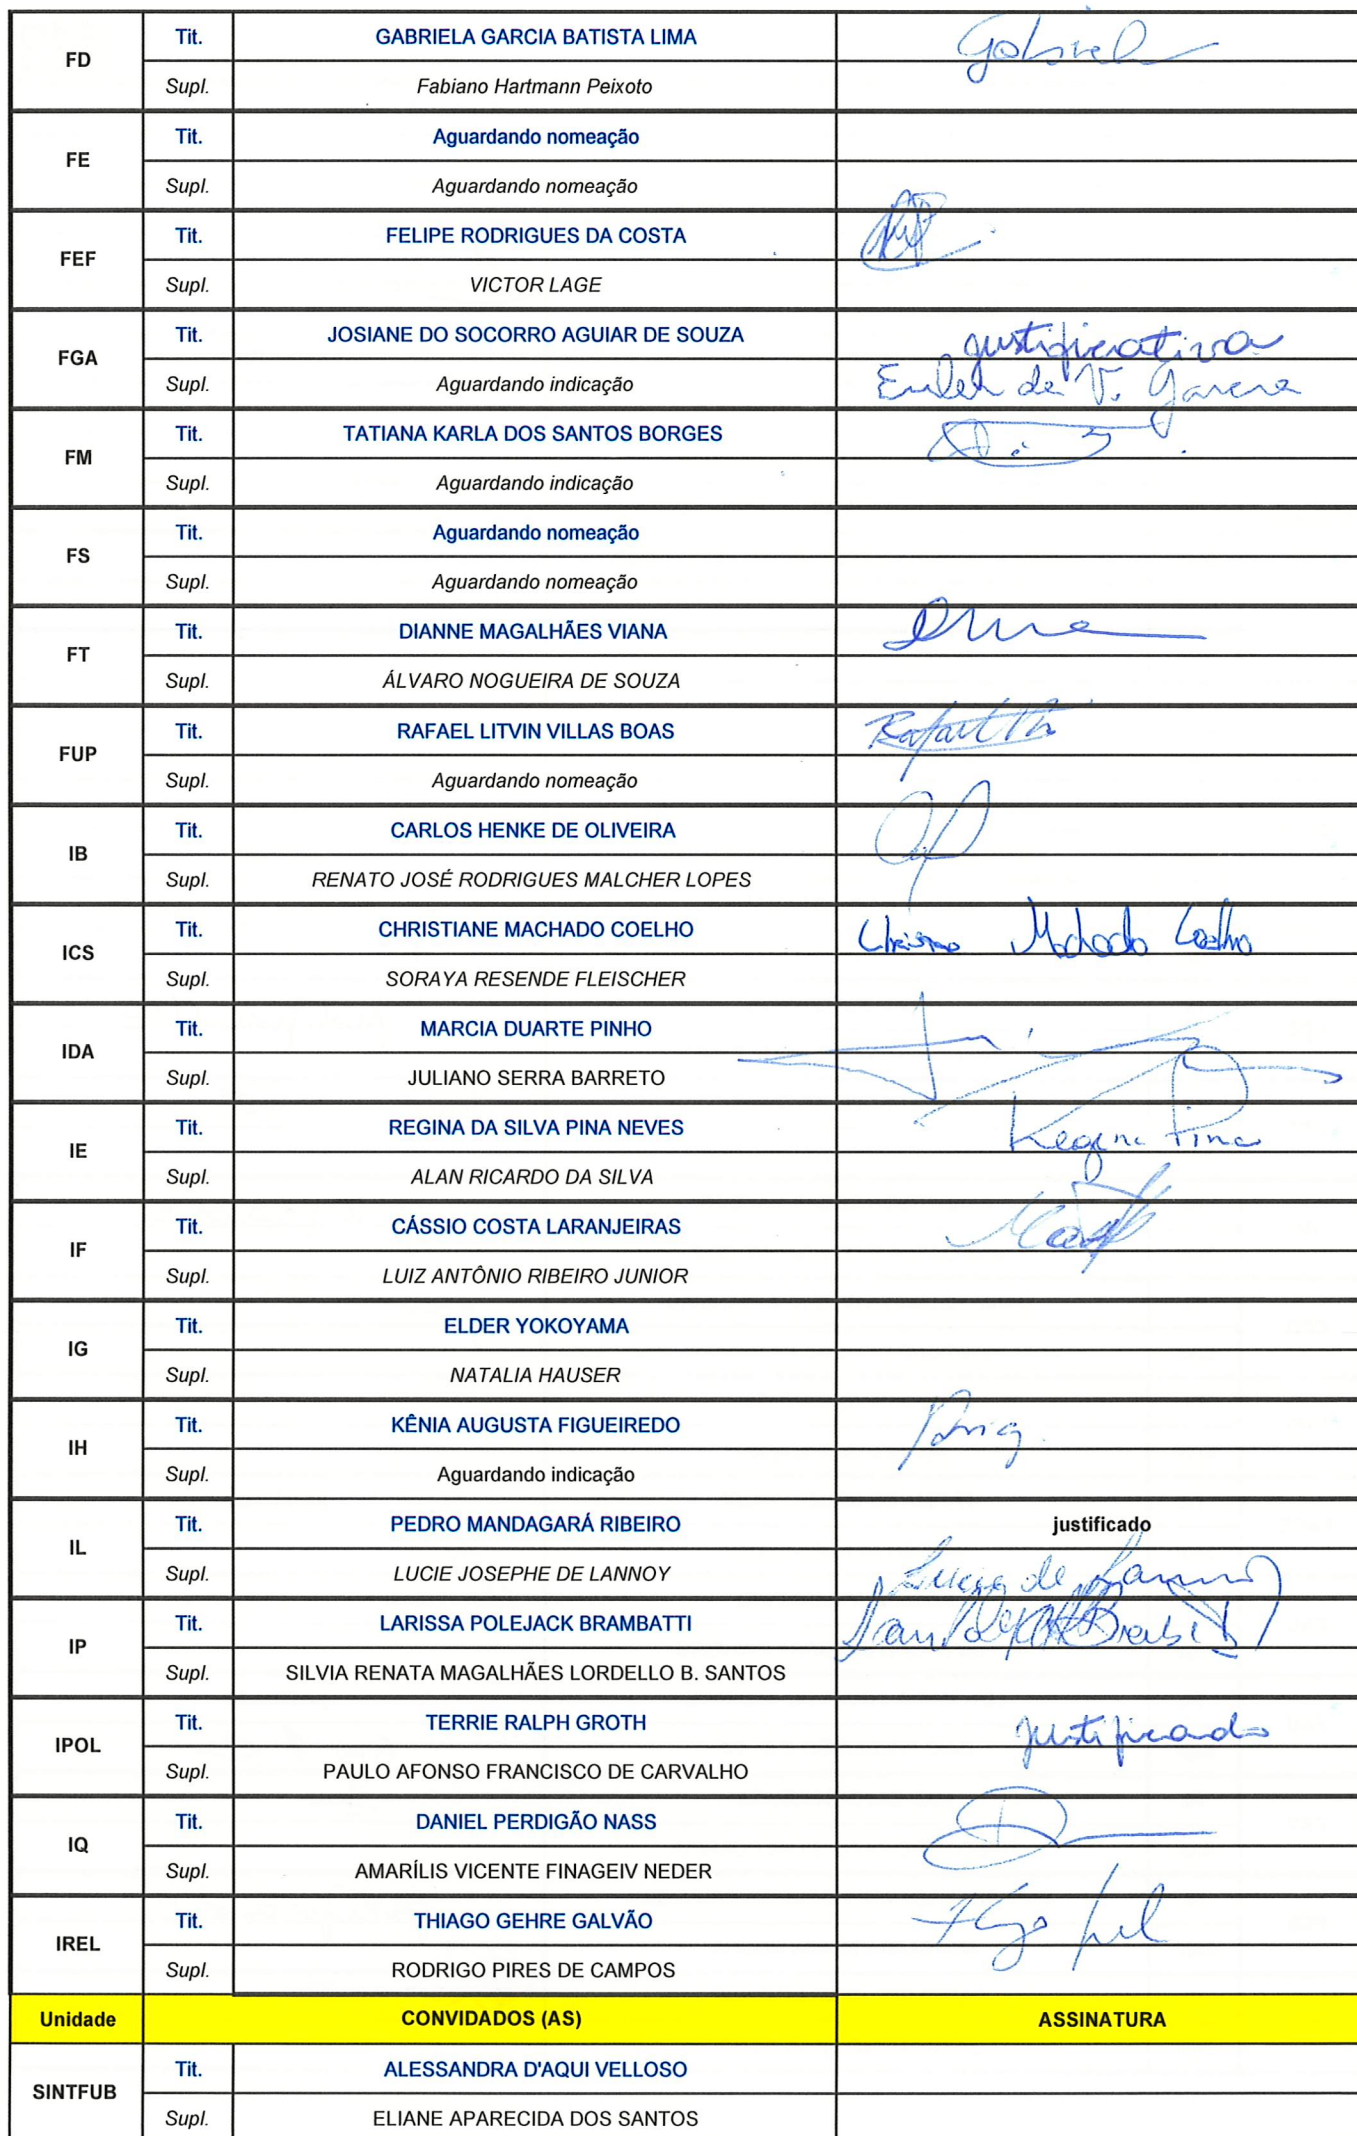 FD Tit. GABRIELA GARCIA BATISTA LIMA Gabriel
Supl. Fabiano Hartmann Peixoto
FE Tit. Aguardando nomeação
Supl. Aguardando nomeação
FEF Tit. FELIPE RODRIGUES DA COSTA
Supl. VICTOR LAGE
FGA Tit. JOSIANE DO SOCORRO AGUIAR DE SOUZA justificativa
Supl. Aguardando indicação Euler de V. Garcia
FM Tit. TATIANA KARLA DOS SANTOS BORGES
Supl. Aguardando indicação
FS Tit. Aguardando nomeação
Supl. Aguardando nomeação
FT Tit. DIANNE MAGALHÃES VIANA
Supl. ÁLVARO NOGUEIRA DE SOUZA
FUP Tit. RAFAEL LITVIN VILLAS BOAS Rafael
Supl. Aguardando nomeação
IB Tit. CARLOS HENKE DE OLIVEIRA
Supl. RENATO JOSÉ RODRIGUES MALCHER LOPES
ICS Tit. CHRISTIANE MACHADO COELHO Machado Coelho
Supl. SORAYA RESENDE FLEISCHER
IDA Tit. MARCIA DUARTE PINHO
Supl. JULIANO SERRA BARRETO
IE Tit. REGINA DA SILVA PINA NEVES Regina Pina
Supl. ALAN RICARDO DA SILVA
IF Tit. CÁSSIO COSTA LARANJEIRAS
Supl. LUIZ ANTÔNIO RIBEIRO JUNIOR
IG Tit. ELDER YOKOYAMA
Supl. NATALIA HAUSER
IH Tit. KÊNIA AUGUSTA FIGUEIREDO
Supl. Aguardando indicação
IL Tit. PEDRO MANDAGARÁ RIBEIRO justificado
Supl. LUCIE JOSEPHE DE LANNOY Lucie de Lannoy
IP Tit. LARISSA POLEJACK BRAMBATTI
Supl. SILVIA RENATA MAGALHÃES LORDELLO B. SANTOS
IPOL Tit. TERRIE RALPH GROTH justificado
Supl. PAULO AFONSO FRANCISCO DE CARVALHO
IQ Tit. DANIEL PERDIGÃO NASS
Supl. AMARÍLIS VICENTE FINAGEIV NEDER
IREL Tit. THIAGO GEHRE GALVÃO
Supl. RODRIGO PIRES DE CAMPOS
Unidade CONVIDADOS (AS) ASSINATURA
SINTFUB Tit. ALESSANDRA D'AQUI VELLOSO
Supl. ELIANE APARECIDA DOS SANTOS